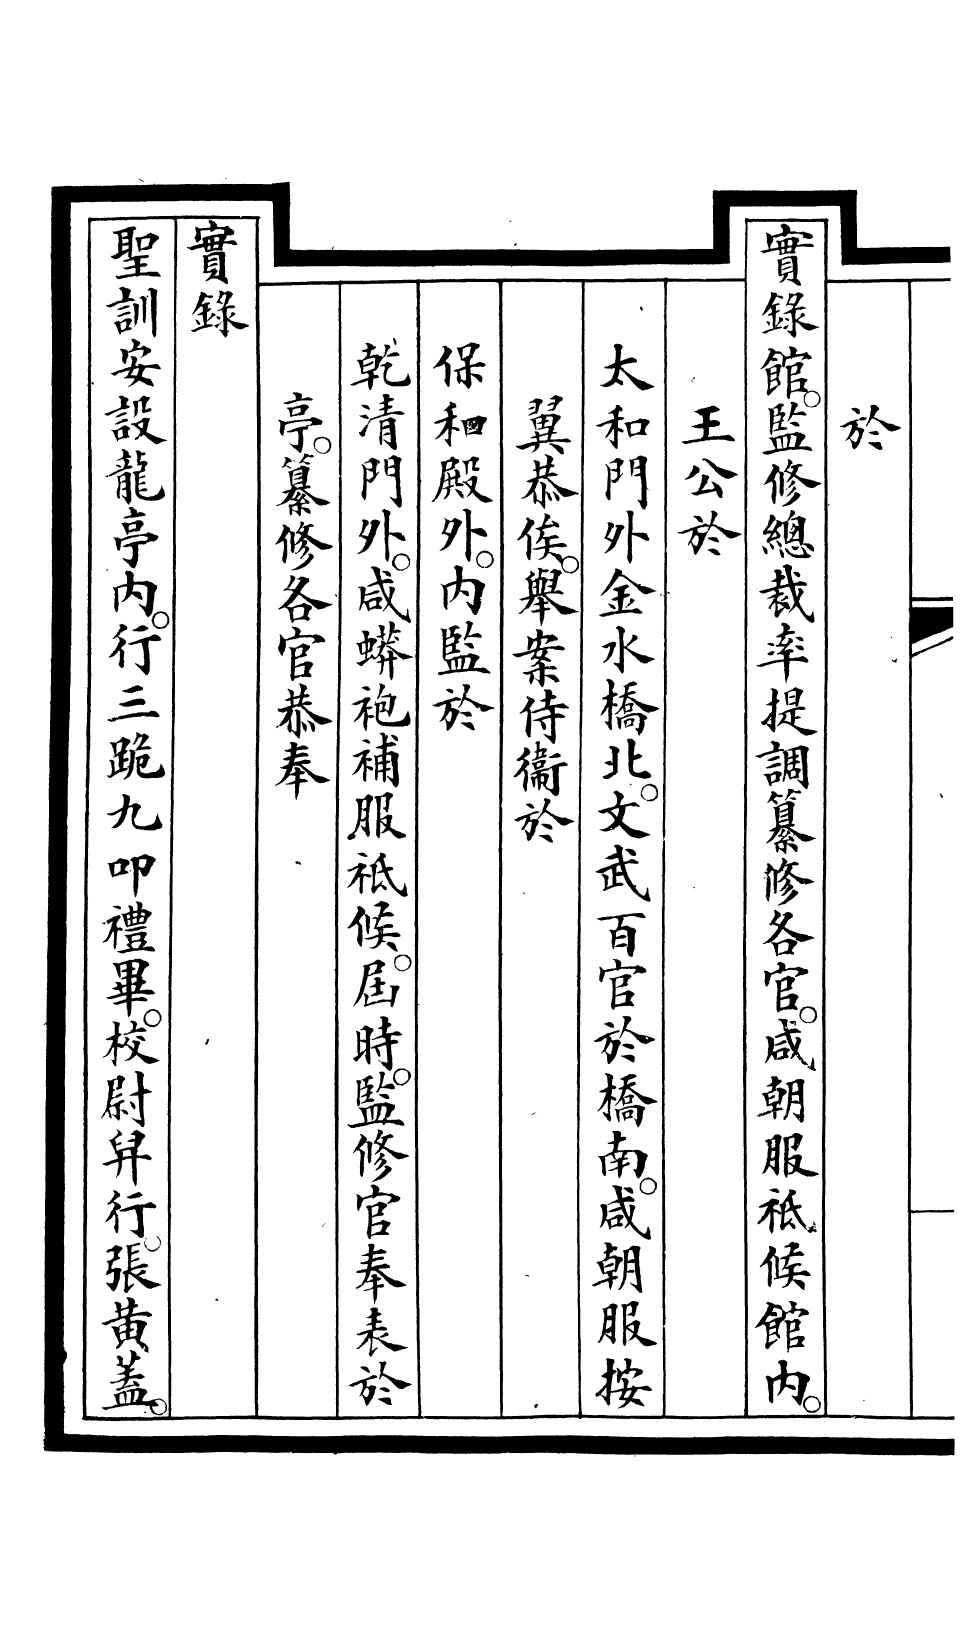 於
實錄館。監修總裁率提調纂修各官。咸朝服祗候館內。
王公於
太和門外金水橋北。文武百官於橋南。咸朝服按
翼恭俟。舉案侍衞於
保和殿外。內監於
乾清門外。咸蟒袍補服祗候。屆時。監修官奉表於
亭。纂修各官恭奉
實錄
聖訓安設龍亭內。行三跪九叩禮畢。校尉舁行。張黃蓋。